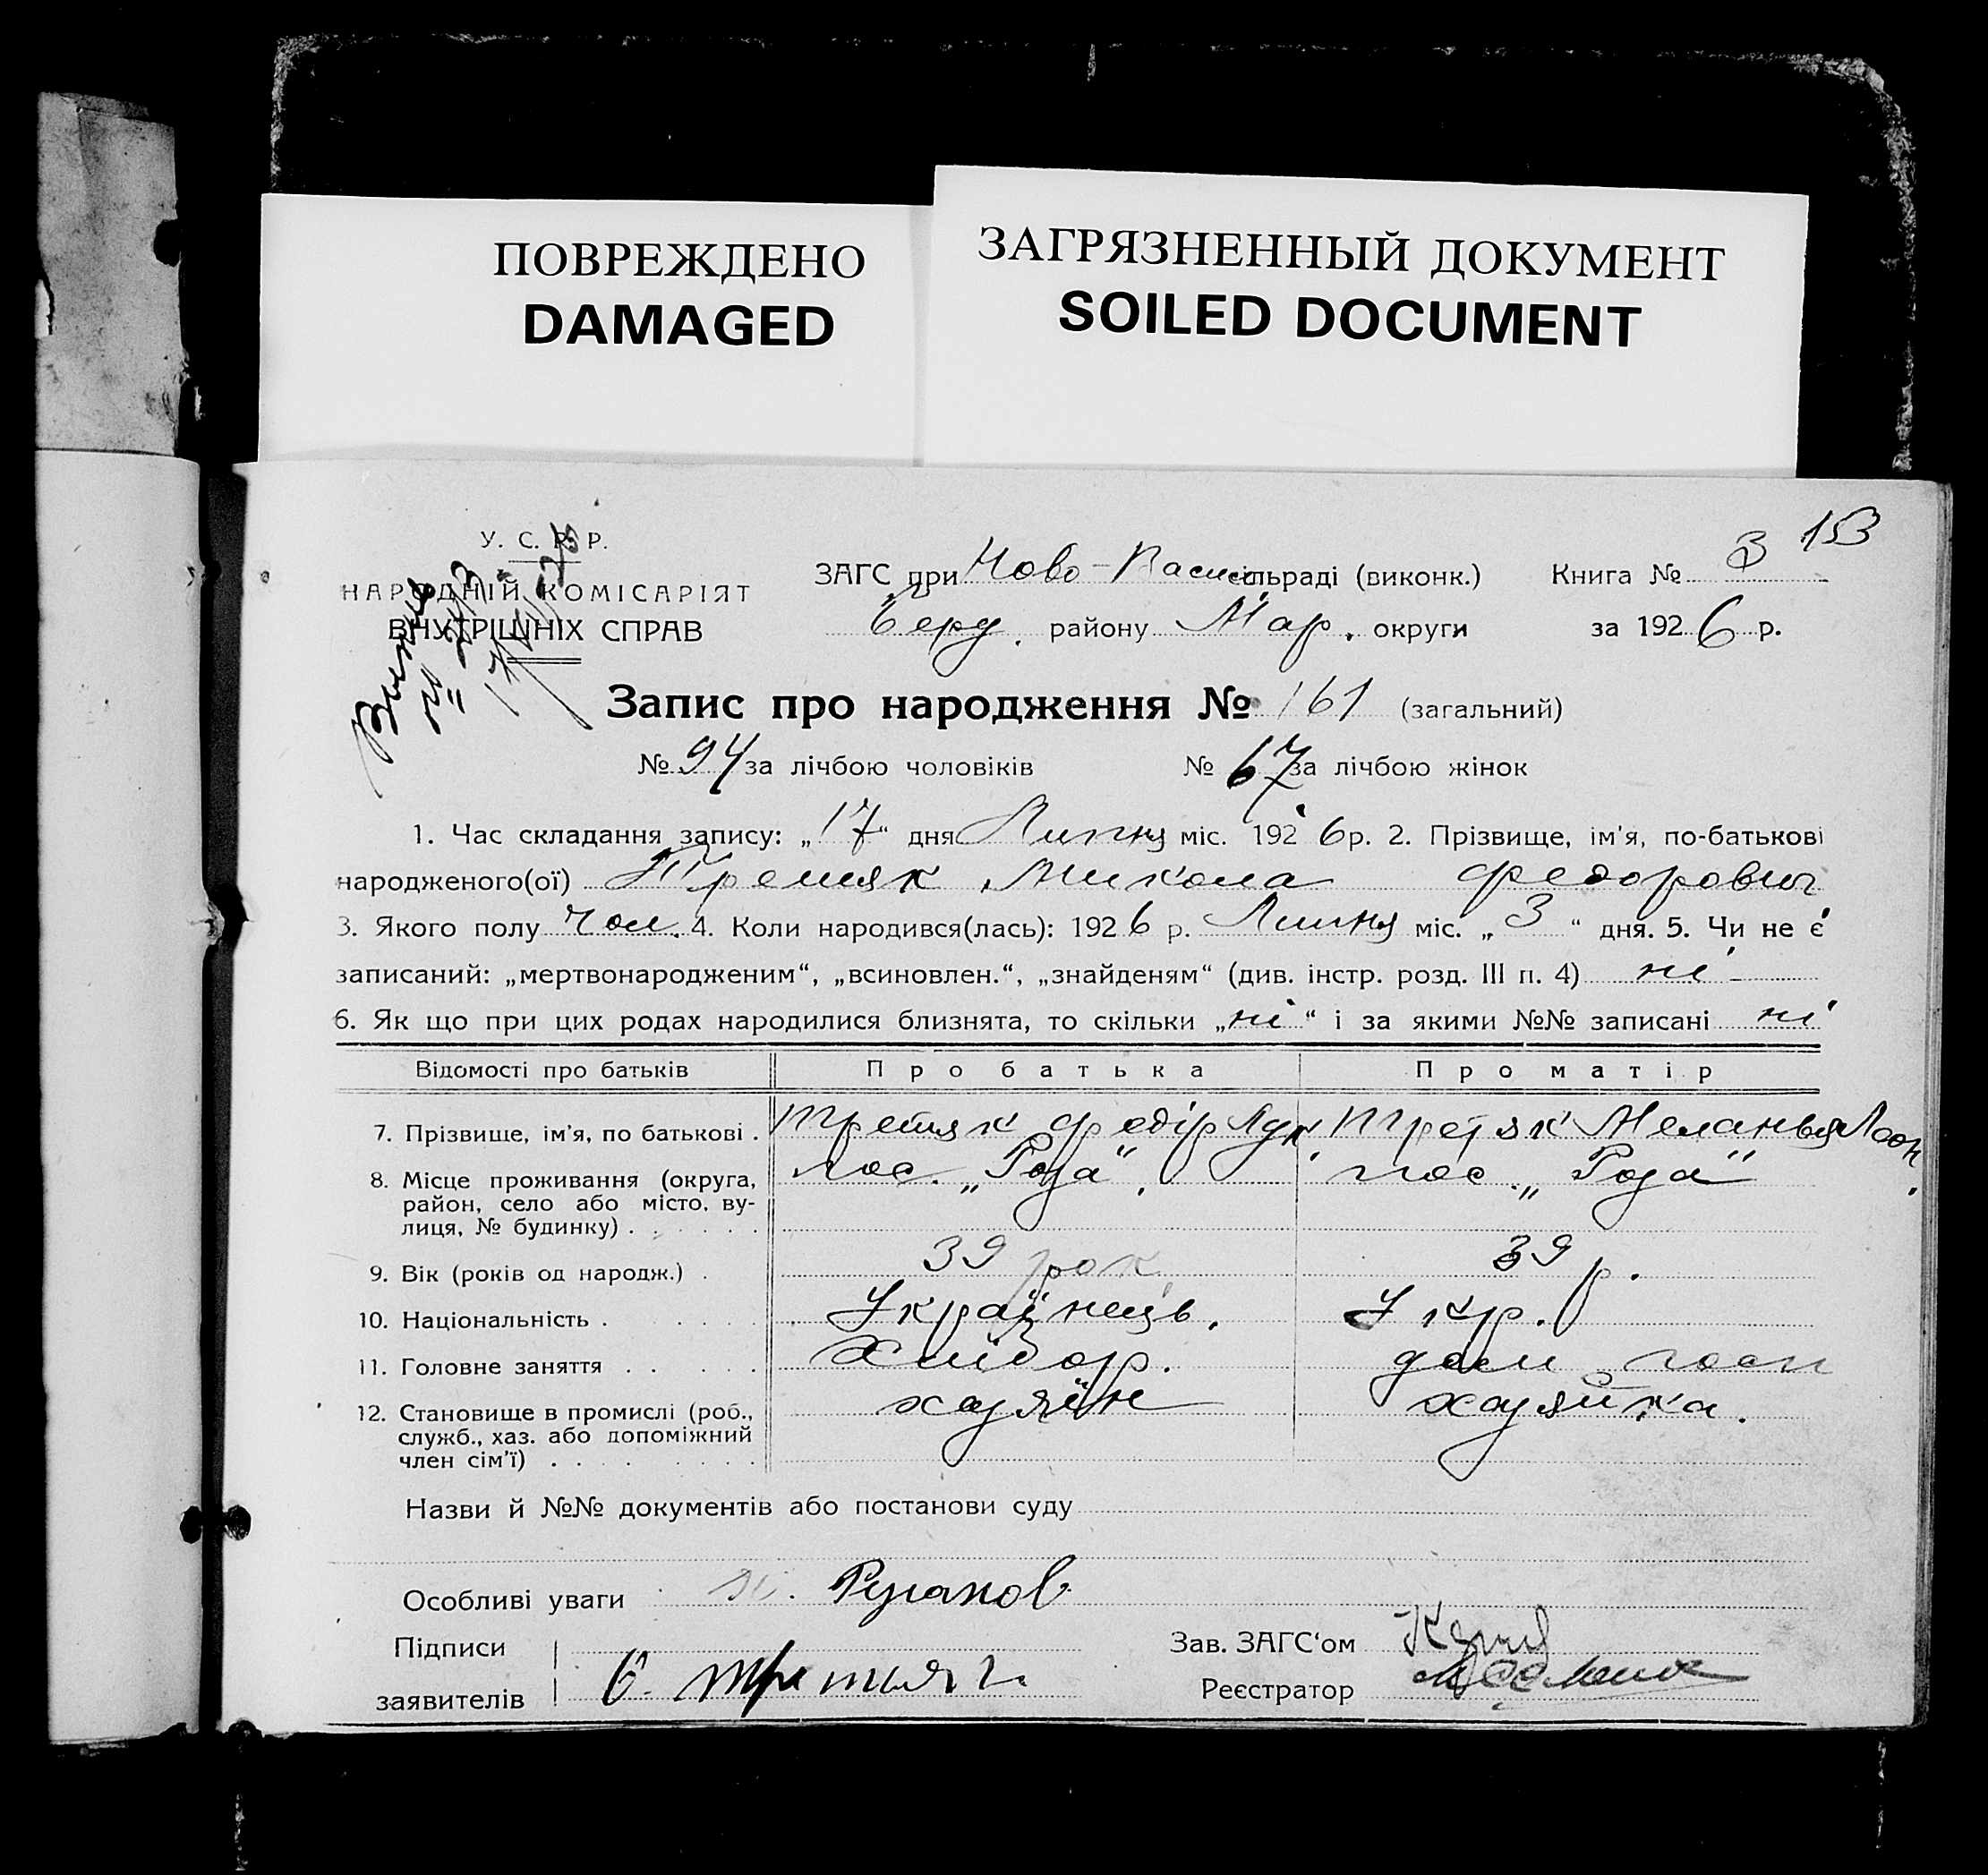 ПОВРЕЖДЕНО
DAMAGED
ЗАГРЯЗНЕННЫЙ ДОКУМЕНТ
SOILED DOCUMENT
153
У. С. Р. Р.
НАРОДНІЙ КОМІСАРІЯТ
ВНУТРІШНІХ СПРАВ
ЗАГС при Ново-Васил сільраді (виконк.) Книга № 3
Берд. району Мар. округи за 1926 р.
Запис про народження № 161 (загальний)
№ 94 за лічбою чоловіків № 67 за лічбою жінок
1. Час складання запису: „17“ дня Липня міс. 1926 р. 2. Прізвище, ім'я, по-батькові
народженого(ої) Третяк Микола Федорович
3. Якого полу Чол. 4. Коли народився(лась): 1926 р. Липня міс. „3“ дня. 5. Чи не є
записаний: „мертвонародженим“, „всиновлен.“, „знайденям“ (див. інстр. розд. III п. 4) ні
6. Як що при цих родах народилися близнята, то скільки „ні“ і за якими №№ записані ні
Відомості про батьків Про батька Про матір
7. Прізвище, ім'я, по батькові . Третяк Федір Третяк Меланья
8. Місце проживання (округа, район, село або місто, вулиця, № будинку) . пос. „Роза“. пос. „Роза“
9. Вік (років од народж.) . 39 рок. 39 р.
10. Національність . Українець. Укр.
11. Головне заняття . Хлібор. дом госп
12. Становище в промислі (роб., служб., хаз. або допоміжний член сім'ї) . хазяїн хазяйка.
Назви й №№ документів або постанови суду
Особливі уваги
Підписи
заявителів
Зав. ЗАГС'ом
Реєстратор